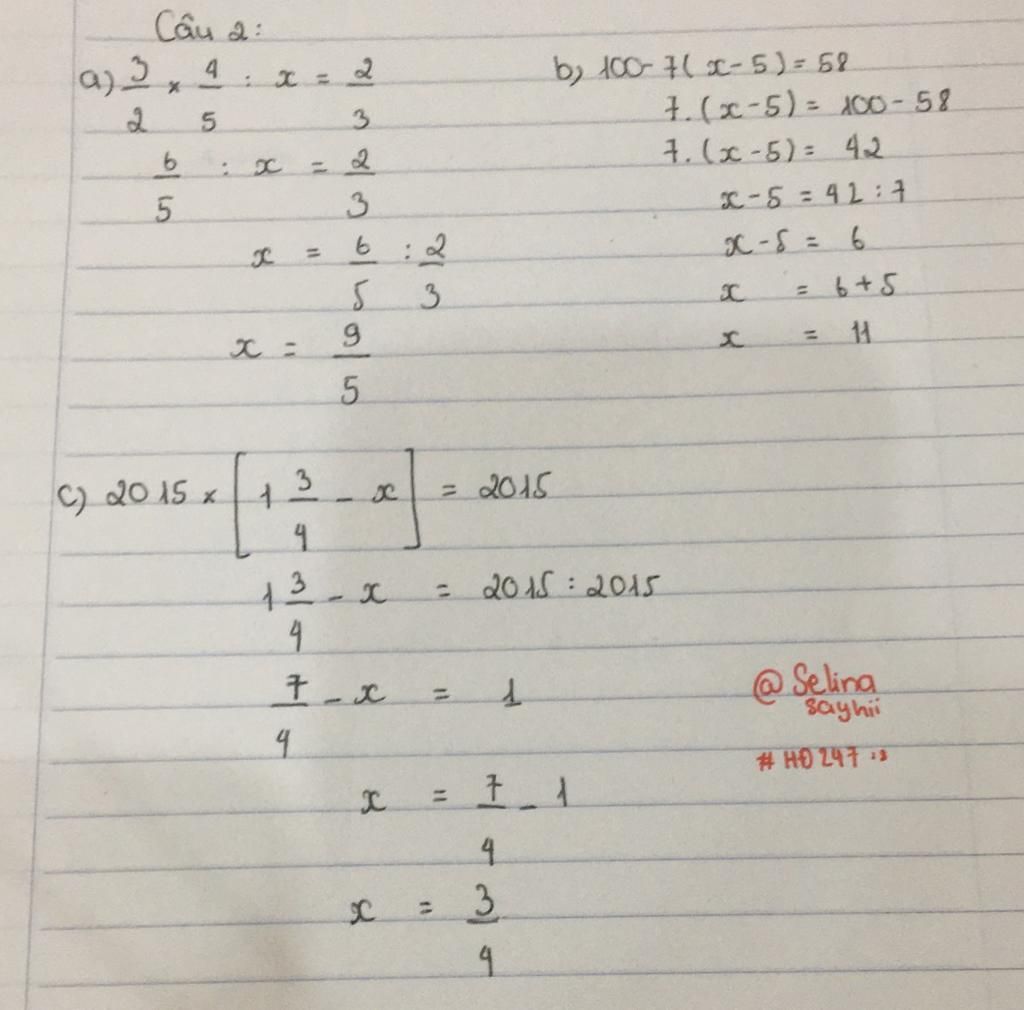 Câu 2:
a) 3/2 × 4/5 : x = 2/3
6/5 : x = 2/3
x = 6/5 : 2/3
x = 9/5
b) 100 - 7(x - 5) = 58
7.(x - 5) = 100 - 58
7.(x - 5) = 42
x - 5 = 42 : 7
x - 5 = 6
x = 6 + 5
x = 11
c) 2015 × [1 3/4 - x] = 2015
1 3/4 - x = 2015 : 2015
7/4 - x = 1
x = 7/4 - 1
x = 3/4
@Selina
sayhii
#HĐ247